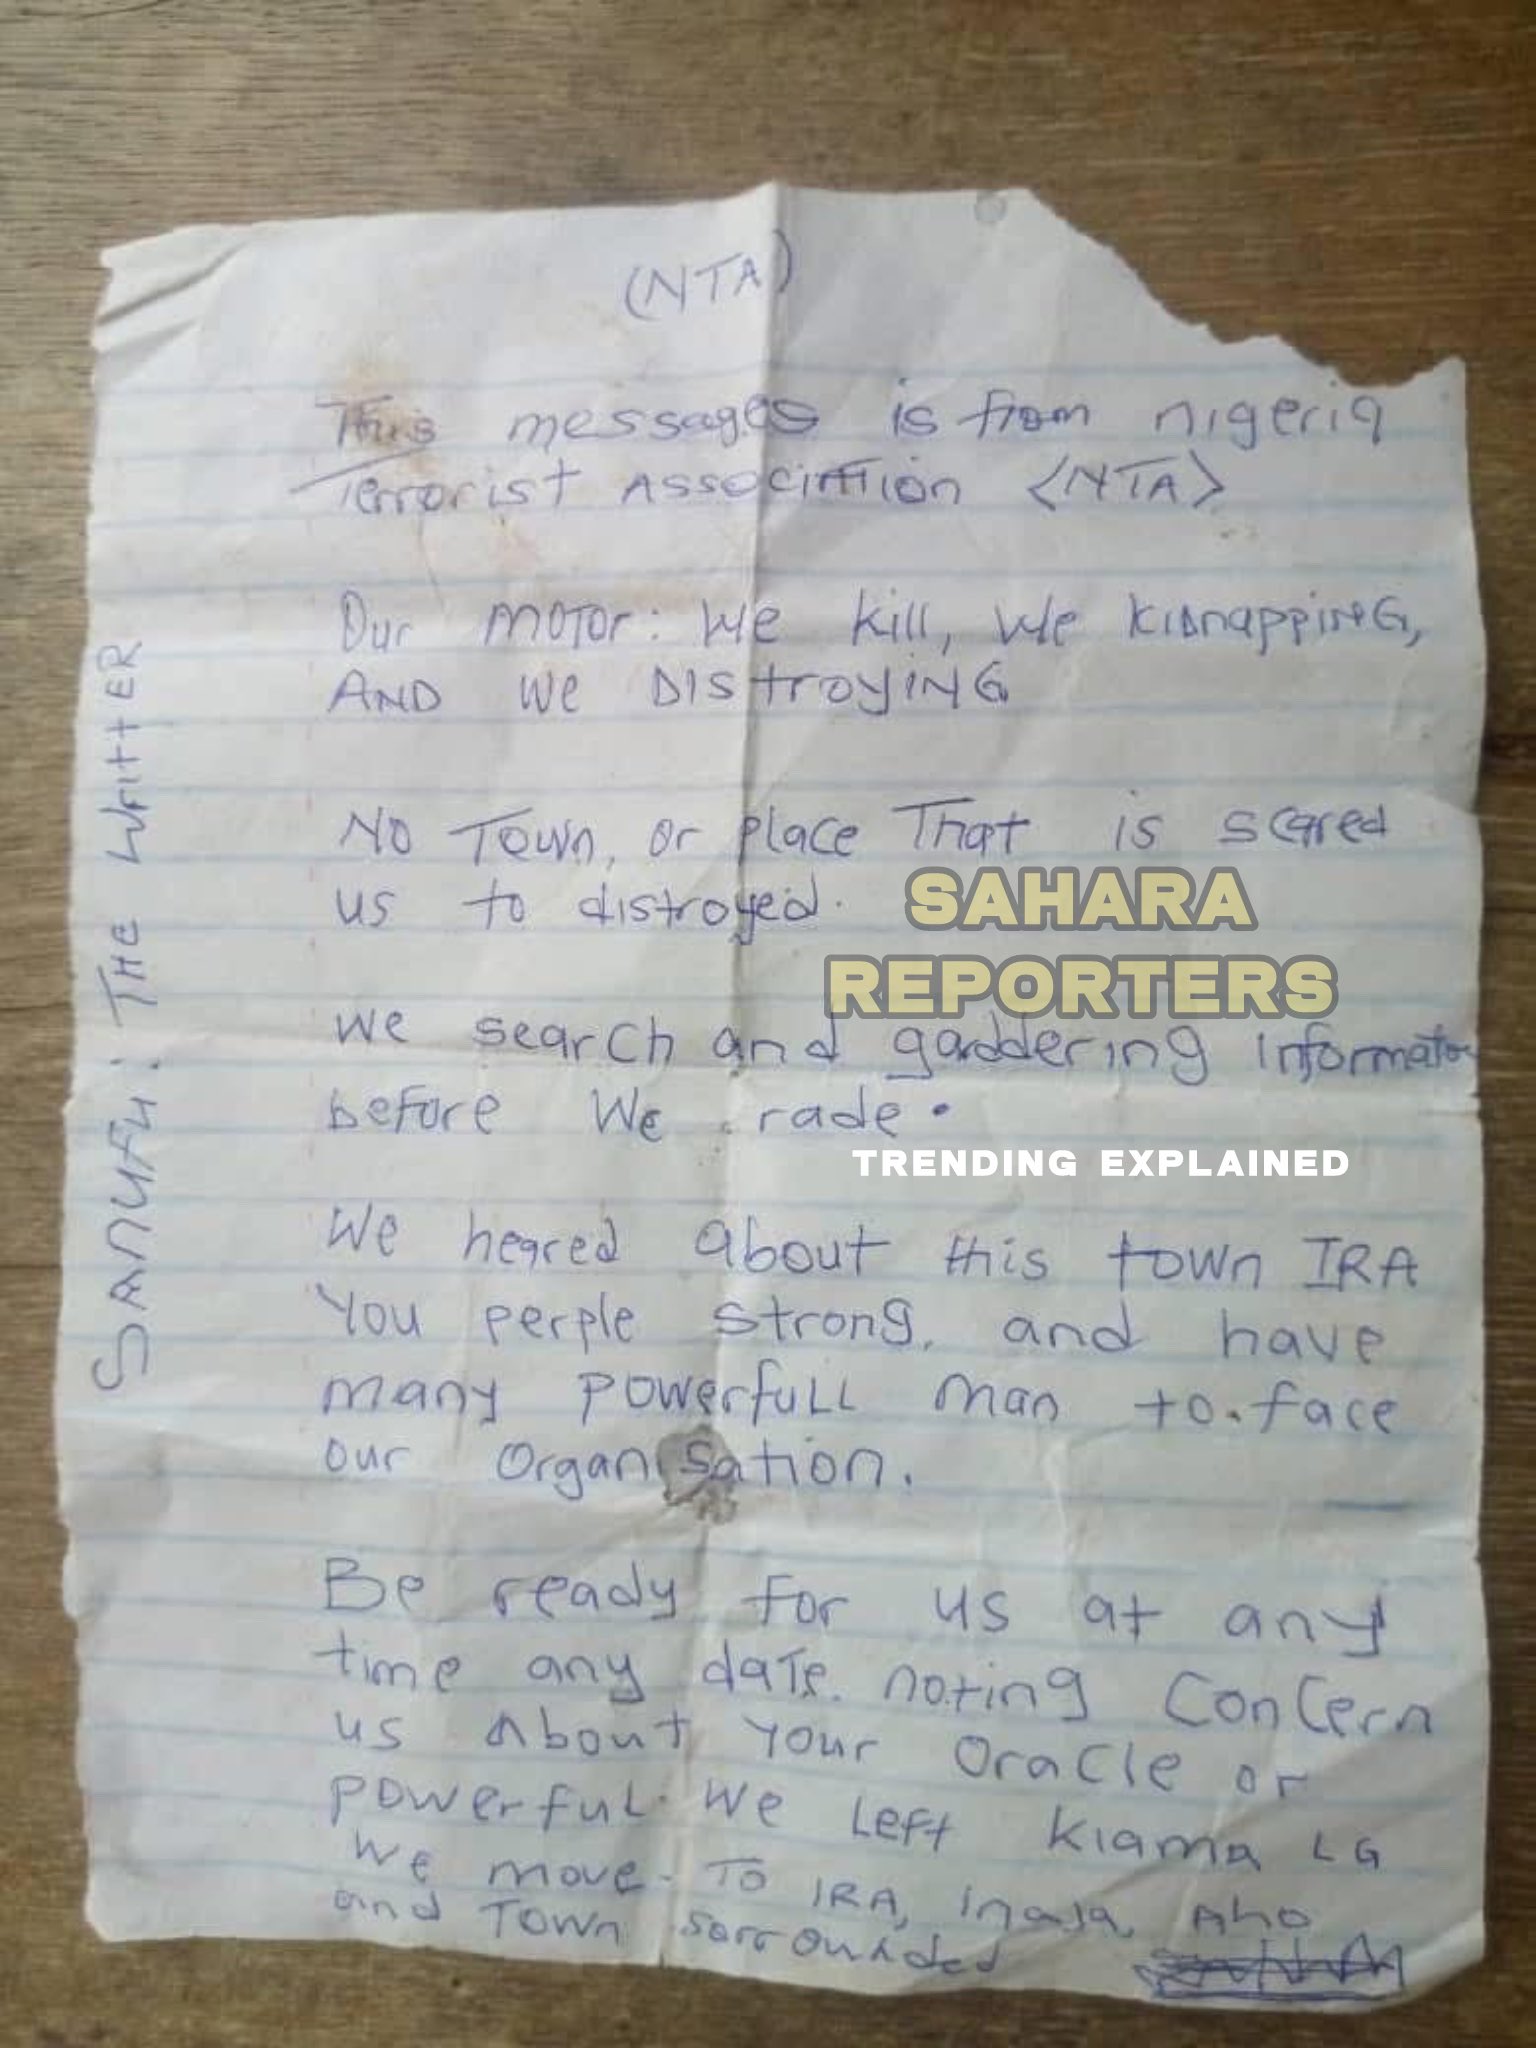 (NTA)
This messages is from nigeria
Terrorist Association <NTA>
Our motor: We kill, We kidnappinG,
AND We DIStroyinG
No Town, or place That is scared
us to distroyed.
SAHARA
REPORTERS
We search and gaddering informatio
before We rade.
TRENDING EXPLAINED
We heared about this town IRA
You perple strong, and have
many powerfull man to. face
our organisation.
Be ready for us at any
time any date. noting Concern
us About your Oracle or
powerful. We Left Kiama LG
We move. To IRA, inaja, Aho
and Town sorrounded
SANUFU: THE WRITTER